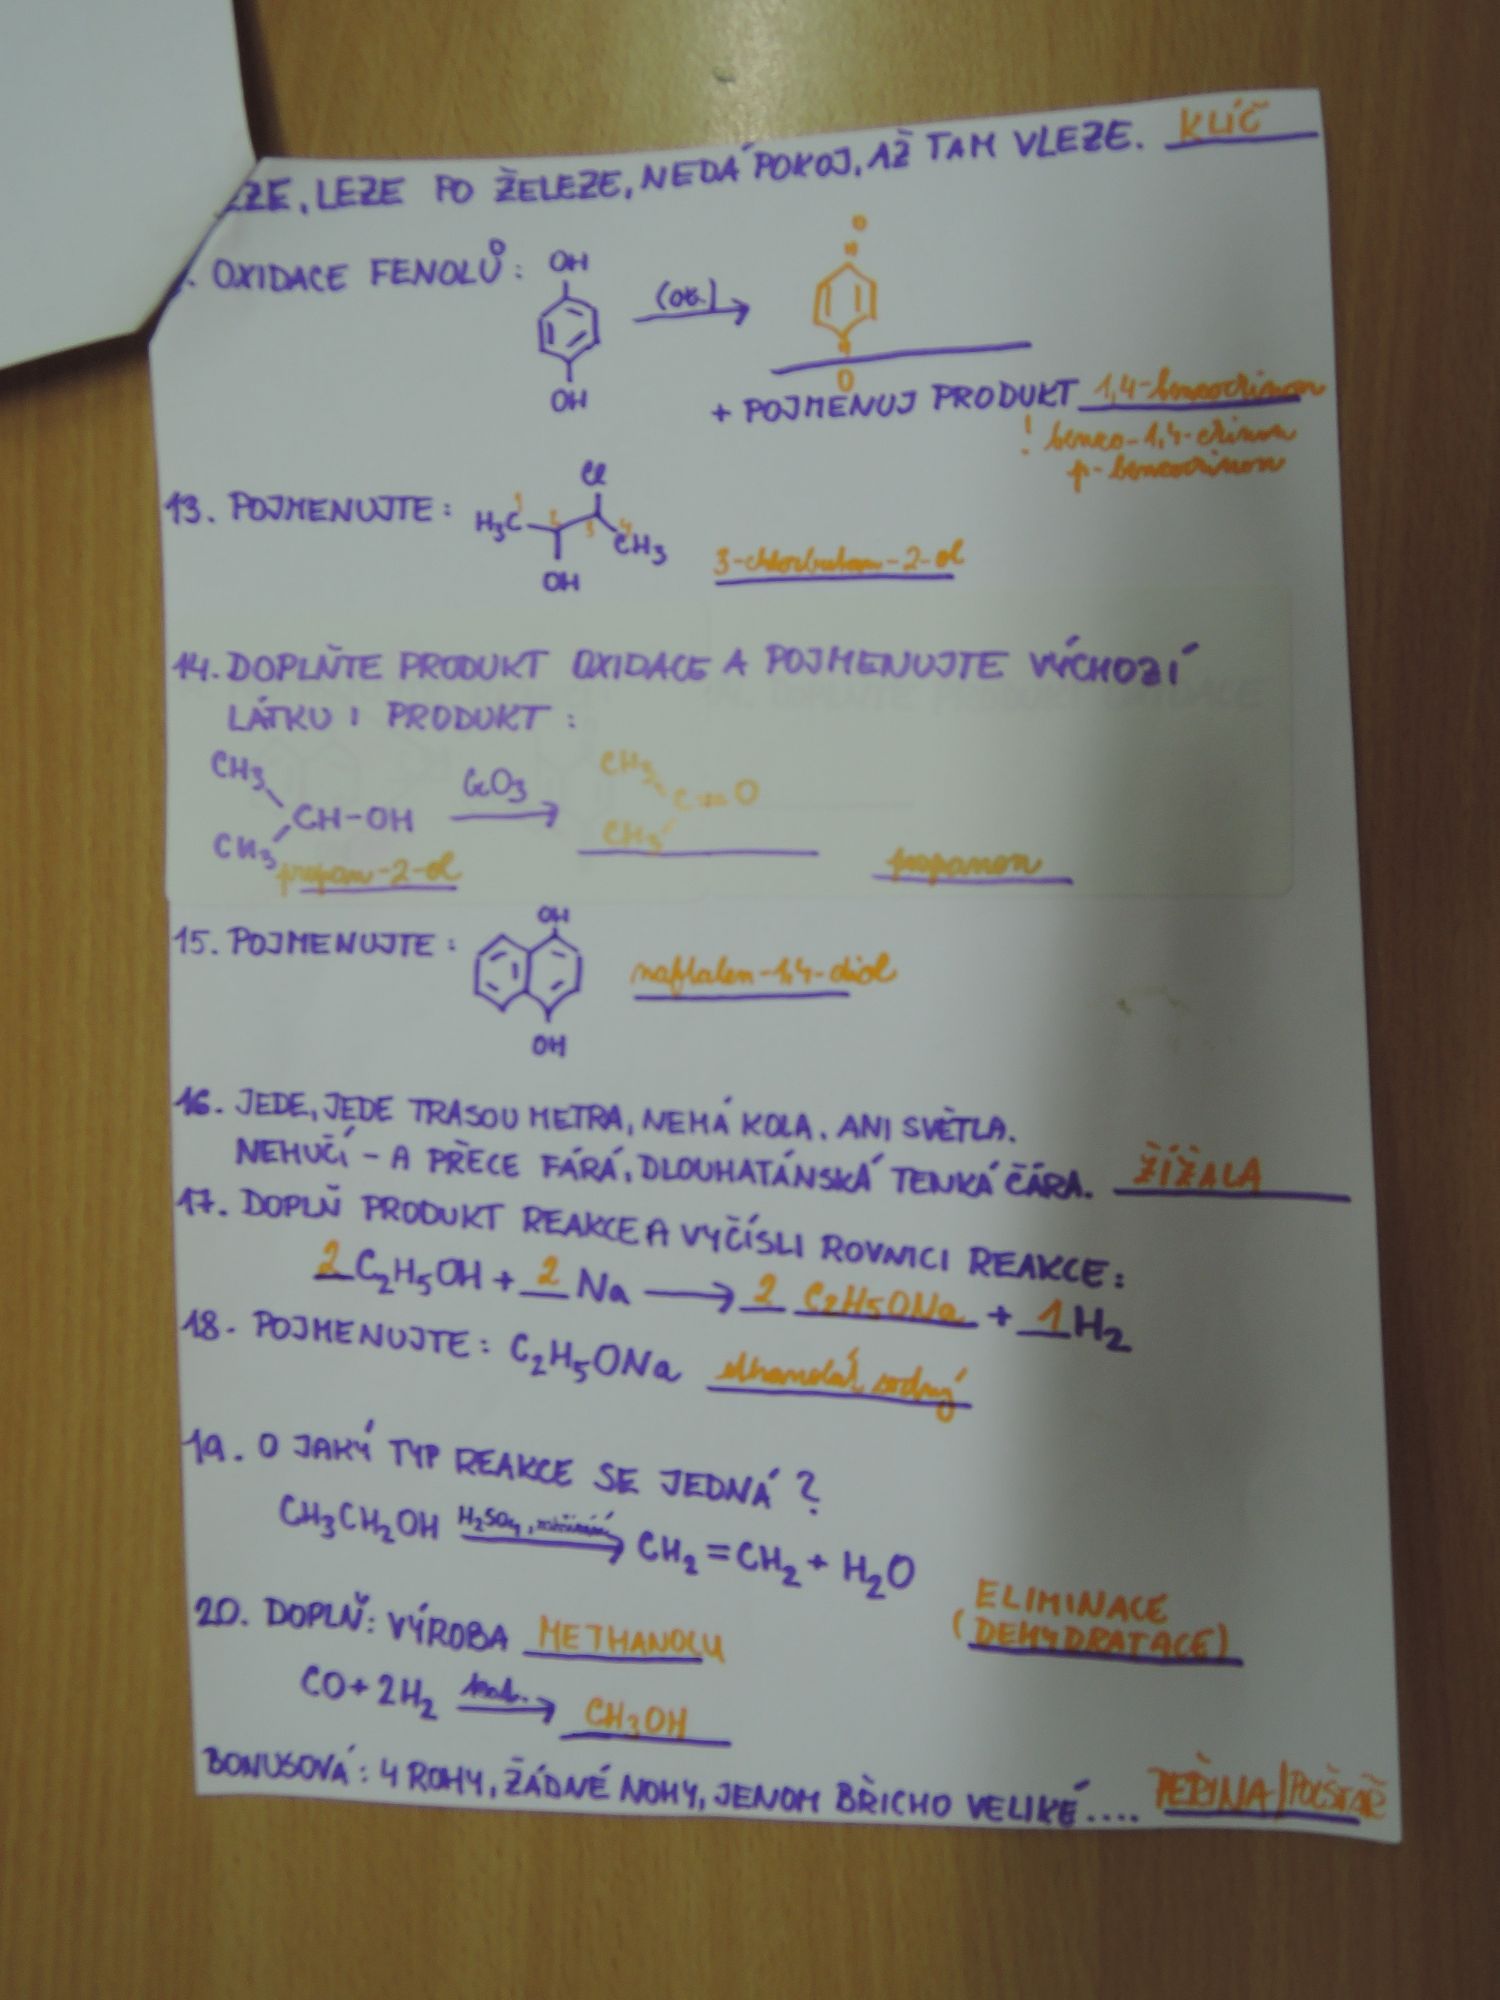 EZE, LEZE PO ŽELEZE, NEDÁ POKOJ, AŽ TAM VLEZE. KLÍČ
. OXIDACE FENOLŮ:
OH
OH
(ox.)
O
O
+ POJMENUJ PRODUKT 1,4-benzochinon
! benzo-1,4-chinon
p-benzochinon
13. POJMENUJTE:
Cl
H3C 1 2 3 4 CH3
OH
3-chlorbutan-2-ol
14. DOPLŇTE PRODUKT OXIDACE A POJMENUJTE VÝCHOZÍ
LÁTKU I PRODUKT:
CH3 CH3
CH-OH CrO3 C=O
CH3 CH3
propan-2-ol propanon
15. POJMENUJTE:
OH
OH
naftalen-1,4-diol
16. JEDE, JEDE TRASOU METRA, NEMÁ KOLA. ANI SVĚTLA.
NEHUČÍ - A PŘECE FÁRÁ, DLOUHATÁNSKÁ TENKÁ ČÁRA. ŽÍŽALA
17. DOPLŇ PRODUKT REAKCE A VYČÍSLI ROVNICI REAKCE:
2 C2H5OH + 2 Na → 2 C2H5ONa + 1 H2
18. POJMENUJTE: C2H5ONa ethanolát sodný
19. O JAKÝ TYP REAKCE SE JEDNÁ?
CH3CH2OH H2SO4, → CH2=CH2 + H2O
ELIMINACE
(DEHYDRATACE)
20. DOPLŇ: VÝROBA METHANOLU
CO + 2H2 → CH3OH
BONUSOVÁ: 4 ROHY, ŽÁDNÉ NOHY, JENOM BŘICHO VELIKÉ.... PEŘINA/POLŠTÁŘ